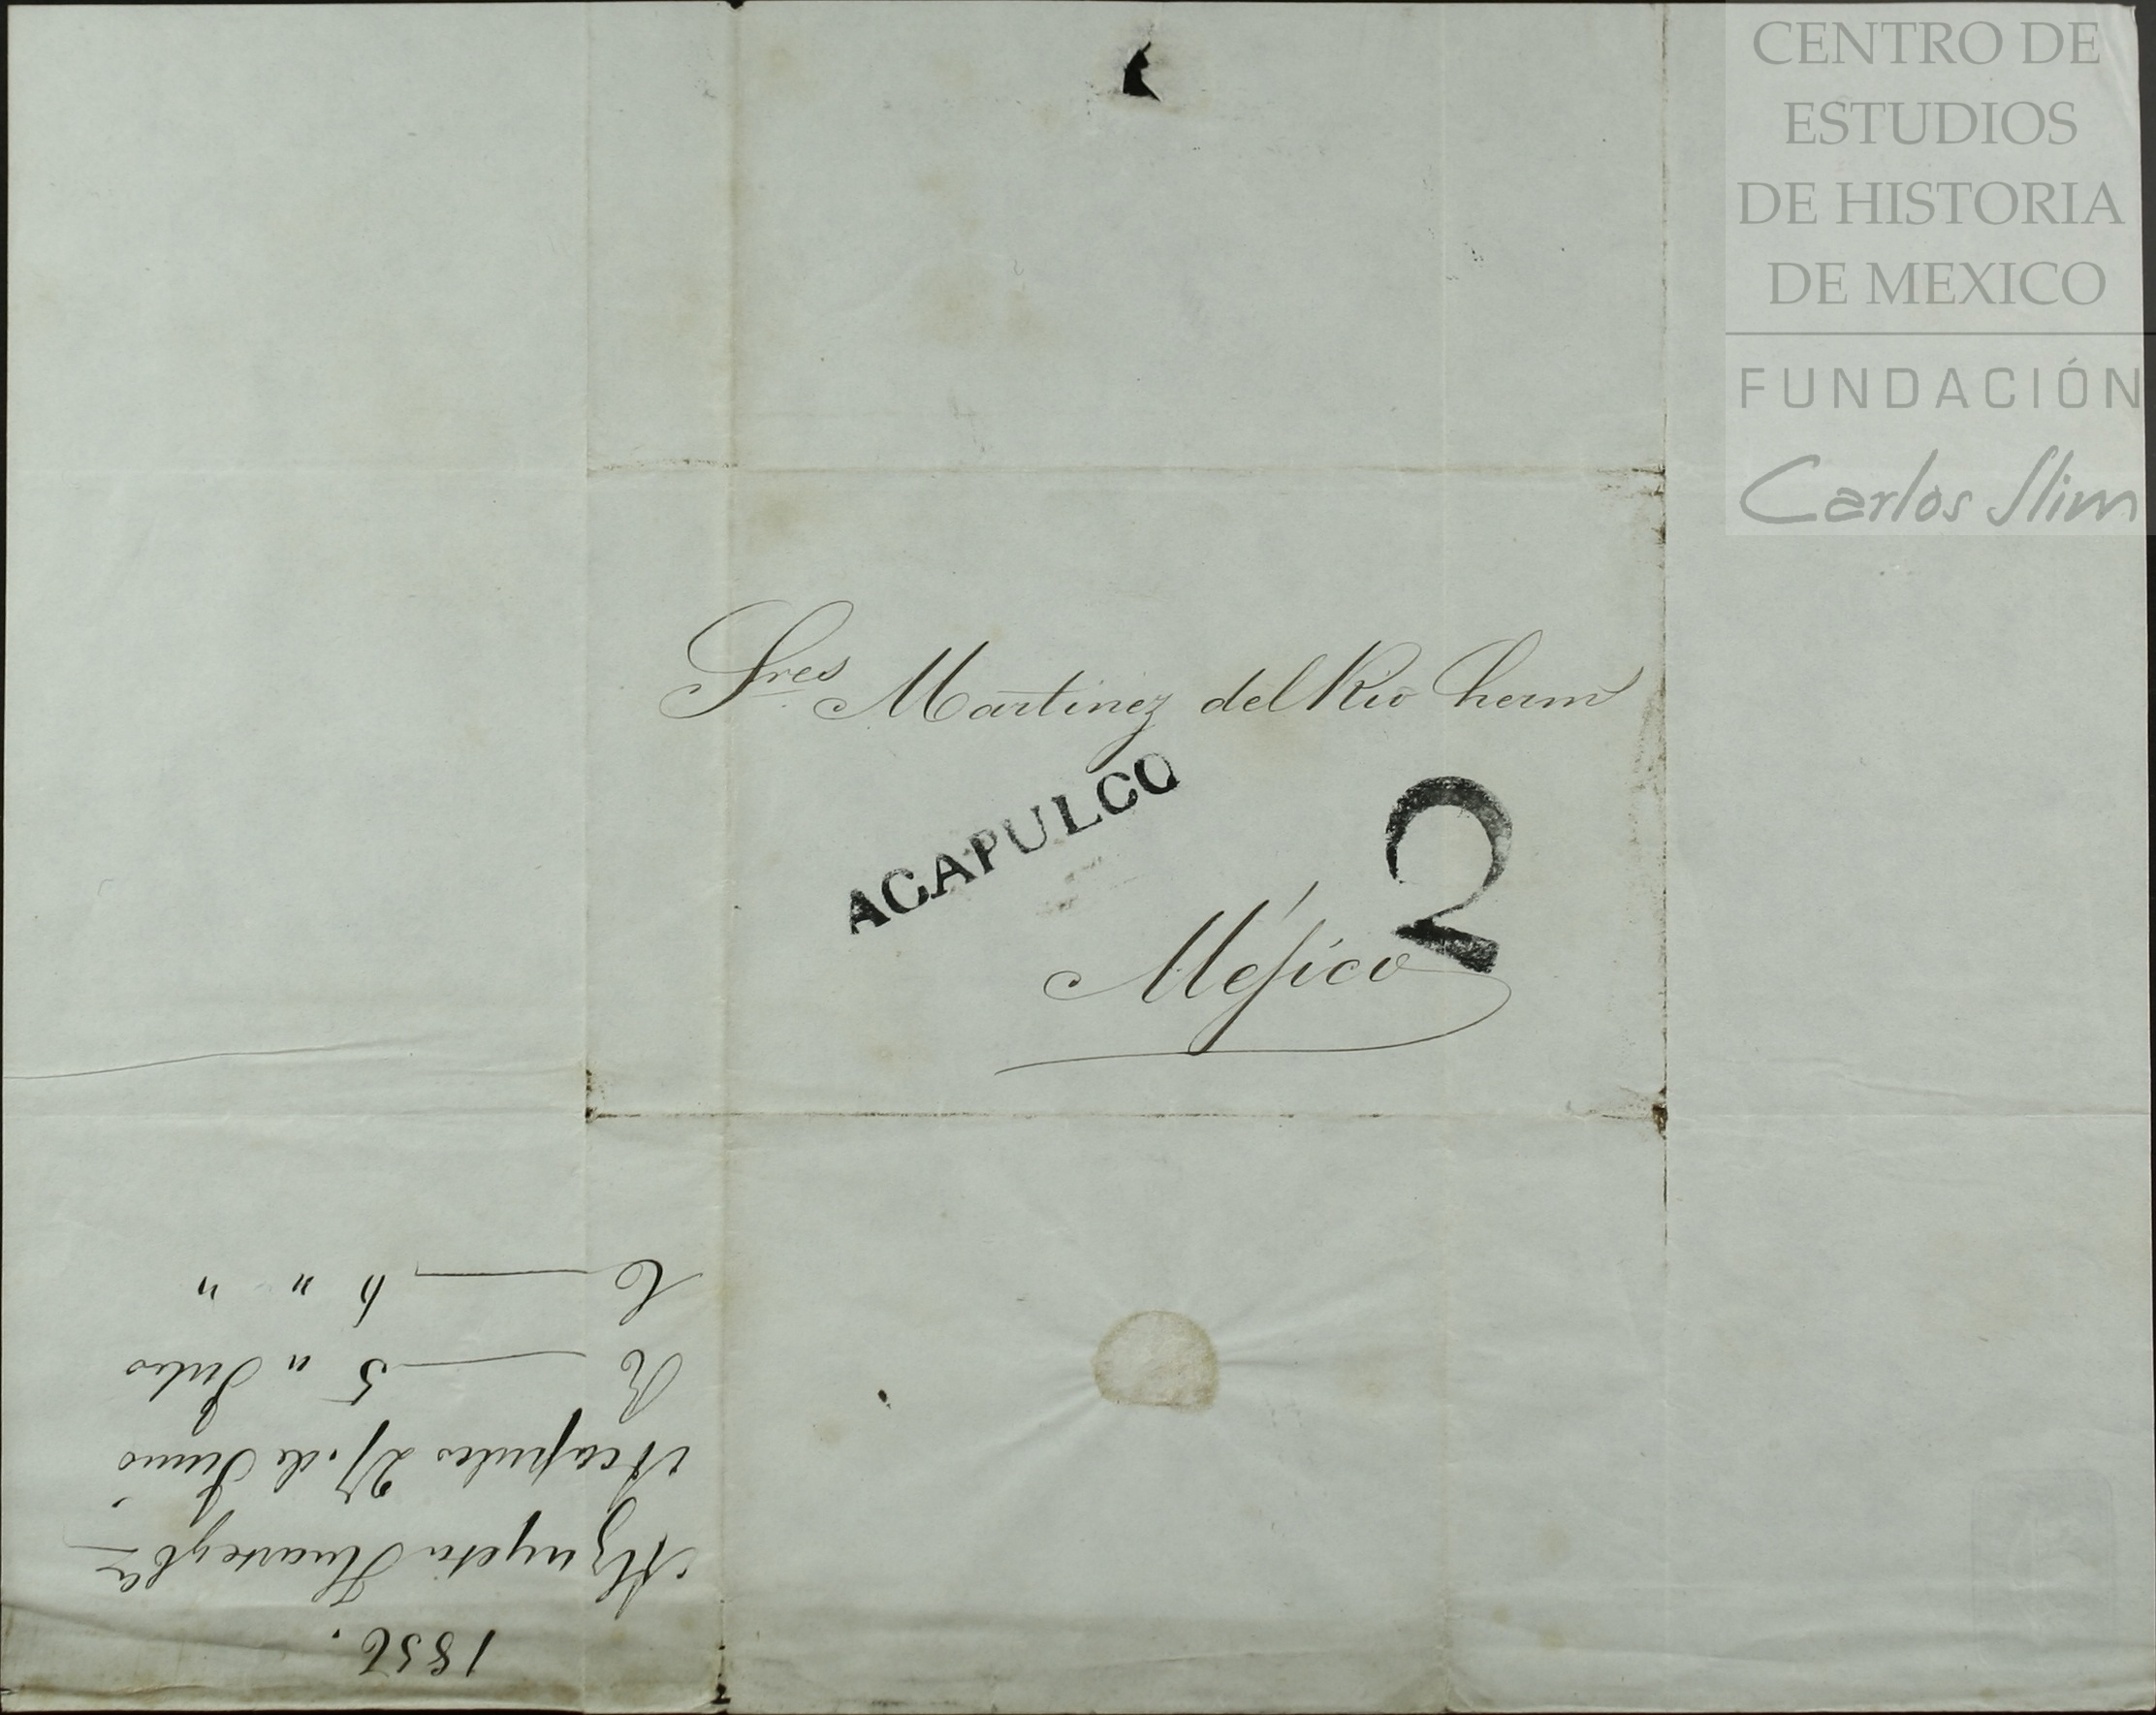 CENTRO DE
ESTUDIOS
DE HISTORIA
DE MEXICO
FUNDACIÓN
Carlos Slim
Sres Martinez del Rio herms
ACAPULCO
2
Méjico
1856.
Acapulco 27. de Junio
R 5 " Julio
C " "